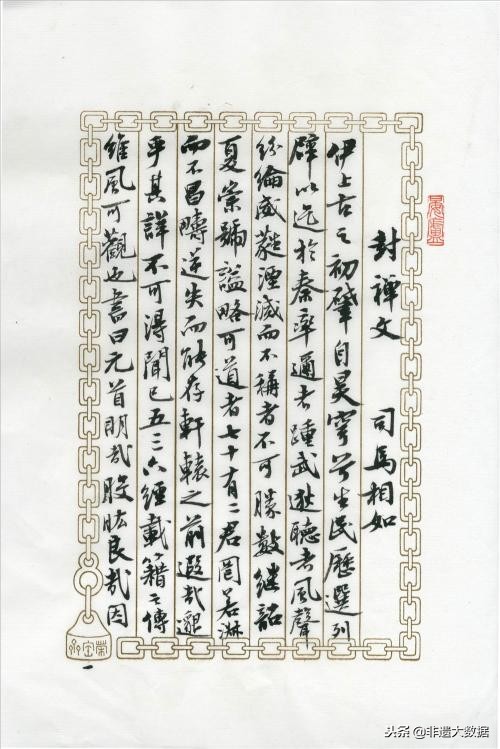 封禪文 司馬相如
伊上古之初肇自昊穹兮生民歷選列
辟以迄於秦率邇者踵武逖聽者風聲
紛綸葳蕤湮滅而不稱者不可勝數継韶
夏崇號謚略可道者七十有二君罔若淑
而不昌疇逆失而能存軒轅之前遐哉邈
乎其詳不可得聞已五三六經載籍之傳
維風可觀也書曰元首明哉股肱良哉因
头条 @非遗大数据